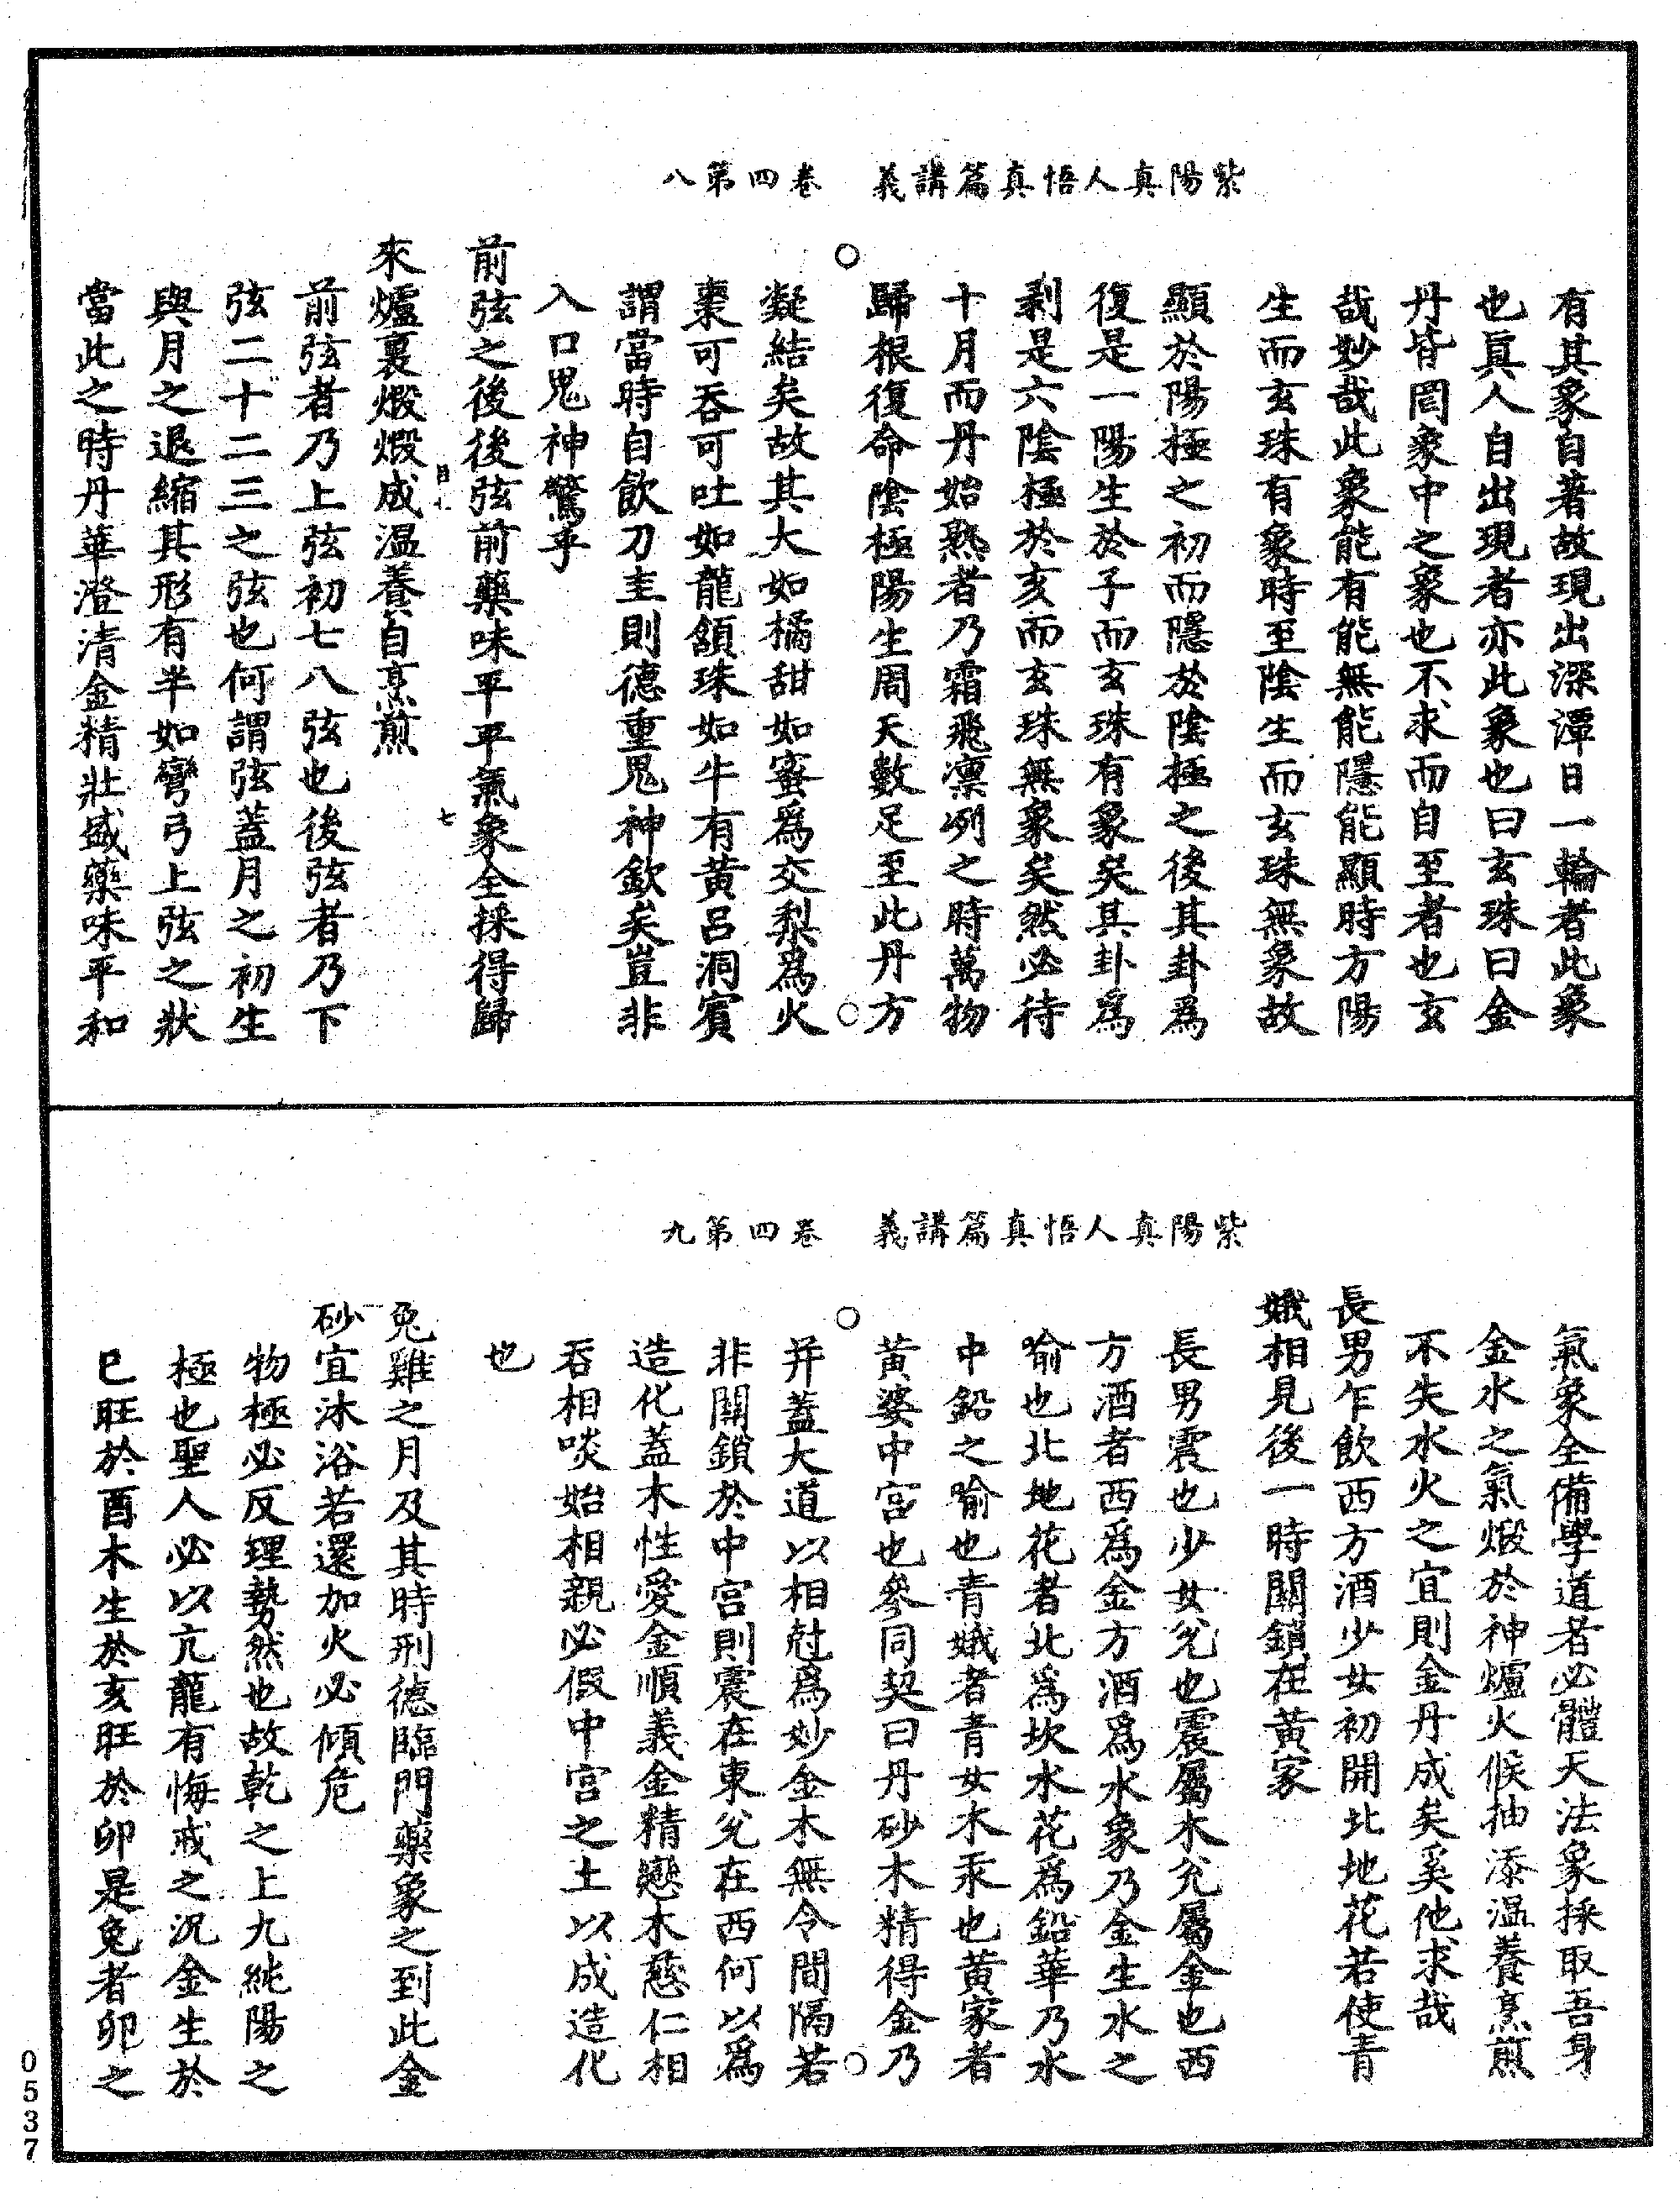 紫陽真人悟真篇講義　卷四第八
有其象自著故現出深潭日一輪者此象
也眞人自出現者亦此象也曰玄珠曰金
丹皆罔象中之象也不求而自至者也玄
哉妙哉此象能有能無能隱能顯時方陽
生而玄珠有象時至陰生而玄珠無象故
顯於陽極之初而隱於陰極之後其卦爲
復是一陽生於子而玄珠有象矣其卦爲
剥是六陰極於亥而玄珠無象矣然必待
十月而丹始熟者乃霜飛凛冽之時萬物
歸根復命陰極陽生周天數足至此丹方
凝結矣故其大如橘甜如蜜爲交梨爲火
棗可吞可吐如龍頷珠如牛有黄呂洞賓
謂當時自飲刀圭則德重鬼神欽矣豈非
入口鬼神驚乎
前弦之後後弦前藥味平平氣象全採得歸
來爐裏煅煅成温養自烹煎
前弦者乃上弦初七八弦也後弦者乃下
弦二十二三之弦也何謂弦蓋月之初生
與月之退縮其形有半如彎弓上弦之狀
當此之時丹華澄清金精壯盛藥味平和
紫陽真人悟真篇講義　卷四第九
氣象全備學道者必體天法象採取吾身
金水之氣煅於神爐火候抽添温養烹煎
不失水火之宜則金丹成矣奚他求哉
長男乍飲西方酒少女初開北地花若使青
娥相見後一時關鎖在黄家
長男震也少女兊也震屬木兊屬金也西
方酒者西爲金方酒爲水象乃金生水之
喻也北地花者北爲坎水花爲鉛華乃水
中鉛之喻也青娥者青女木汞也黄家者
黄婆中宫也參同契曰丹砂木精得金乃
并蓋大道以相尅爲妙金木無令間隔若
非關鎖於中宫則震在東兊在西何以爲
造化蓋木性愛金順義金精戀木慈仁相
吞相啖始相親必假中宫之土以成造化
也
兔雞之月及其時刑德臨門藥象之到此金
砂宜沐浴若還加火必傾危
物極必反理勢然也故乾之上九純陽之
極也聖人必以亢龍有悔戒之沉金生於
巳旺於酉木生於亥旺於卯是兔者卯之
0537